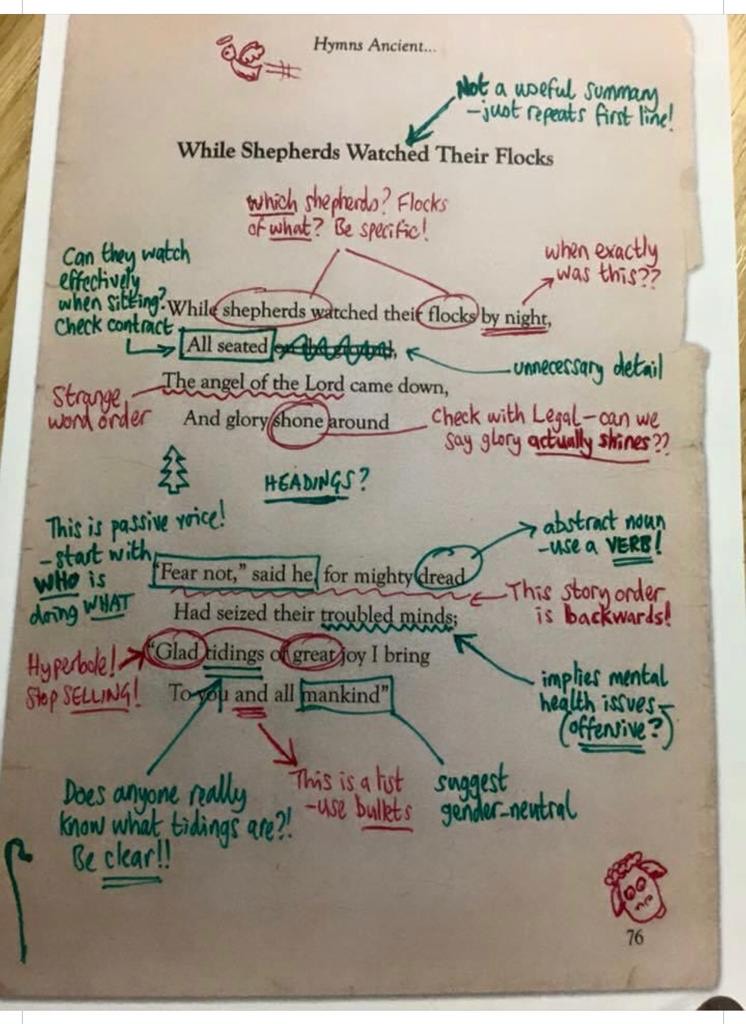 Hymns Ancient...
Not a useful summary
-just repeats first line!
While Shepherds Watched Their Flocks
which shepherds? Flocks
of what? Be specific!
Can they watch
effectively
when sitting?
Check contract
when exactly
was this??
While shepherds watched their flocks by night,
All seated
unnecessary detail
The angel of the Lord came down,
Strange
word order
And glory shone around
Check with Legal-can we
say glory actually shines??
HEADINGS?
This is passive voice!
-start with
WHO is
doing WHAT
abstract noun
-use a VERB!
"Fear not," said he, for mighty dread
This story order
is backwards!
Had seized their troubled minds;
"Glad tidings of great joy I bring
Hyperbole!
Stop SELLING!
To you and all mankind"
implies mental
health issues-
(offensive?)
This is a list
-use bullets
suggest
gender-neutral
Does anyone really
know what tidings are?!
Be clear!!
76